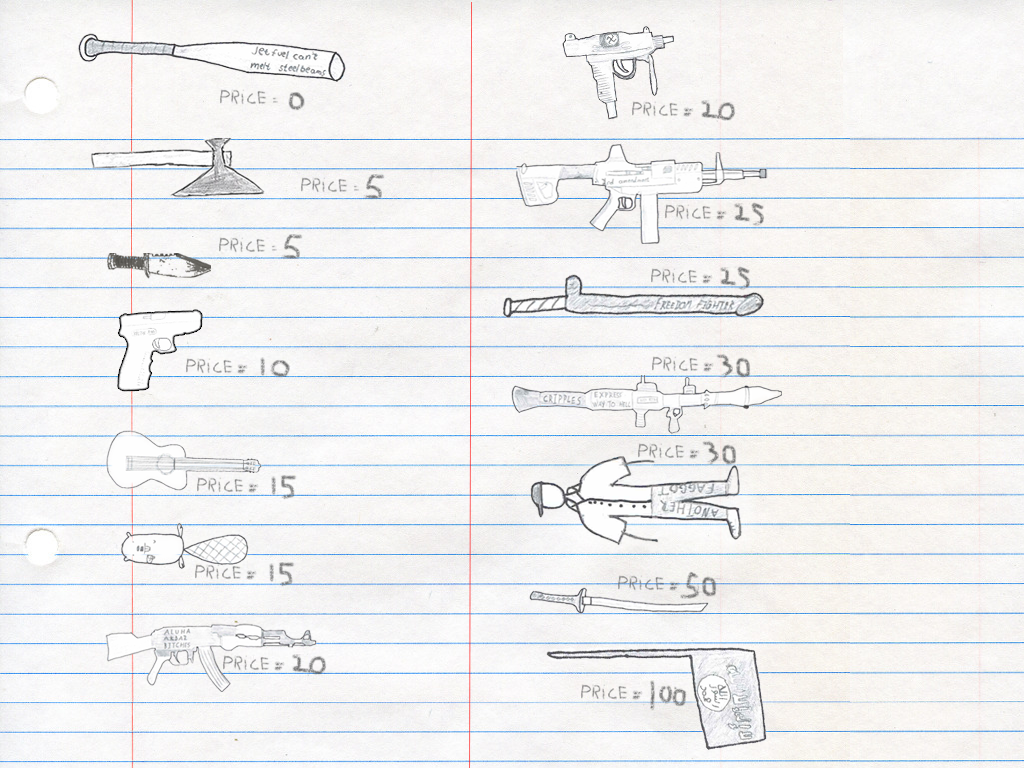 Jet fuel can't
melt steelbeams
PRICE = 0
PRICE = 5
PRICE = 5
PRICE = 10
PRICE = 15
PRICE = 15
ALUHA
AKBAR
BITCHES
PRICE = 20
PRICE = 20
PRICE = 25
PRICE = 25
FREEDOM FIGHTER
PRICE = 30
CRIPPLES
EXPRESS
WAY TO HELL
PRICE = 30
ANOTHER
FAGGOT
PRICE = 50
PRICE = 100